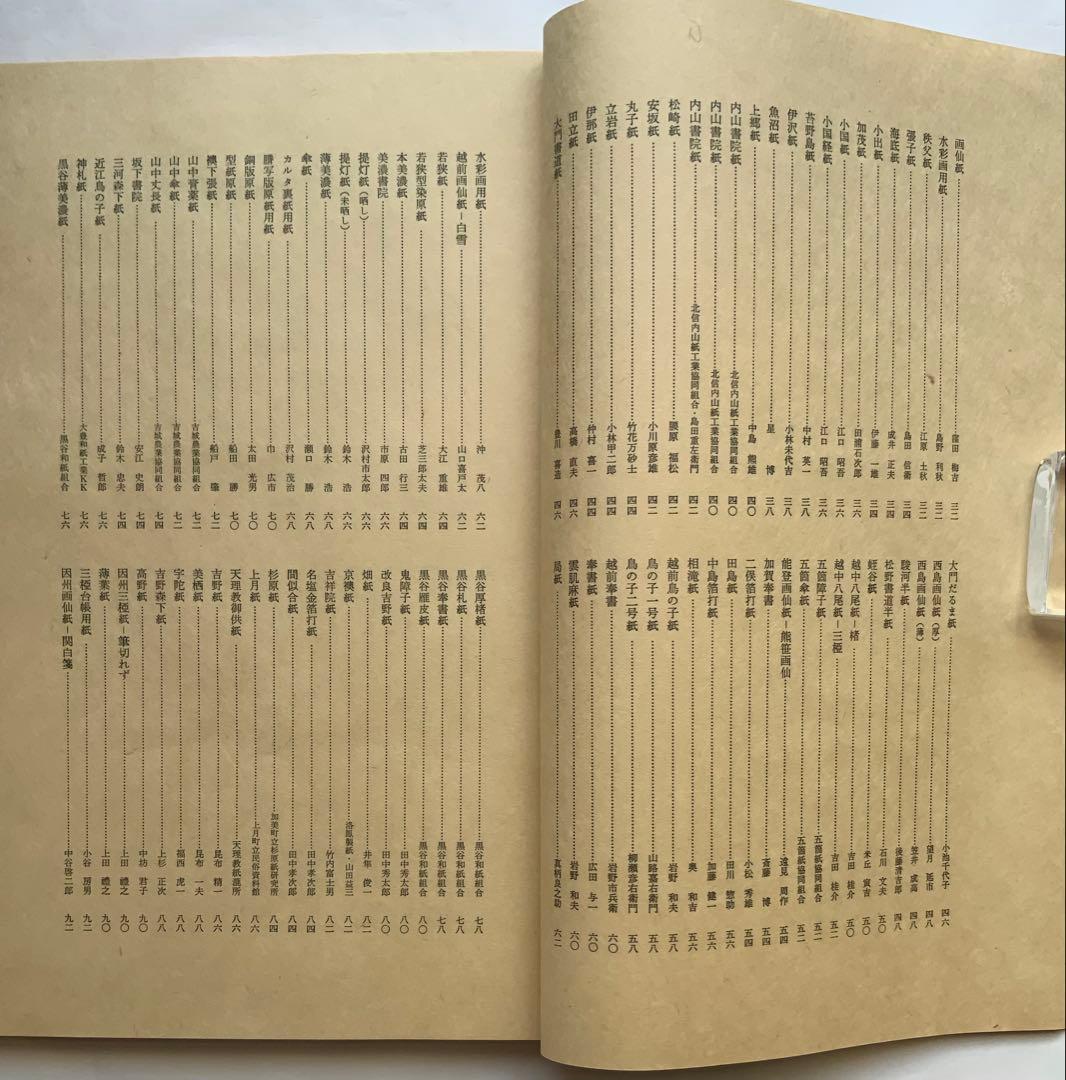 画仙紙 窪田 梅吉 三二
水彩画用紙 島野 利秋 三二
秩父紙 江原 土秋 三二
張子紙 島田 信衛 三四
海底紙 成井 正夫 三四
小出紙 伊藤 一雄 三四
加茂紙 田澹石次郎 三六
小国紙 江口 昭吾 三六
小国経紙 江口 昭吾 三六
苔野島紙 中村 英一 三八
伊沢紙 小林未代吉 三八
魚沼紙 星 博 三八
上郷紙 中島 熊雄 四〇
内山書院紙 北信内山紙工業協同組合 四〇
内山書院紙 北信内山紙工業協同組合 四〇
内山書院紙 北信内山紙工業協同組合・島田重左衛門 四二
松崎紙 腰原 福松 四二
安坂紙 小川原彦雄 四二
丸子紙 竹花万砂士 四四
立岩紙 小林甲二郎 四四
伊那紙 仲村 喜一 四四
田立紙 高橋 直夫 四六
大門書道紙 豊川 喜造 四六
大門だるま紙 小池千代子 四六
西島画仙紙(厚) 望月 延市 四八
西島画仙紙(薄) 笠井 成高 四八
駿河半紙 後藤清吉郎 四八
松野書道半紙 石川 文夫 五〇
蛭谷紙 米丘 寅吉 五〇
越中八尾紙=楮 吉田 桂介 五〇
越中八尾紙=三椏 吉田 桂介 五二
五箇障子紙 五箇紙協同組合 五二
五箇傘紙 五箇紙協同組合 五二
能登画仙紙=熊笹画仙 遠見 周作 五四
加賀奉書 斎藤 博 五四
二俣箔打紙 小松 秀雄 五四
田島紙 田川 惣助 五六
中島箔打紙 加藤 健一 五六
相滝紙 奥 和吉 五六
越前鳥の子紙 岩野 和夫 五八
鳥の子一号紙 山路嘉右衛門 五八
鳥の子二号紙 柳瀬彦右衛門 五八
越前奉書 岩野市兵衛 六〇
奉書紙 広田 与一 六〇
雲肌麻紙 岩野 和夫 六〇
局紙 真柄良之助 六二
水彩画用紙 沖 茂八 六二
越前画仙紙=白雪 山口喜戸太 六二
若狭紙 大江 重雄 六四
若狭型染原紙 芝三郎太夫 六四
本美濃紙 古田 行三 六四
美濃書院 市原 四郎 六六
提灯紙(晒し) 沢村市太郎 六六
提灯紙(未晒し) 鈴木 浩 六六
薄美濃紙 鈴木 浩 六八
傘紙 瀬口 勝 六八
カルタ裏紙用紙 沢村 茂治 六八
謄写版原紙用紙 巾 広市 七〇
銅版原紙 太田 光男 七〇
型紙原紙 船田 勝 七〇
襖下張紙 船戸 肇 七二
山中膏薬紙 吉城農業協同組合 七二
山中傘紙 吉城農業協同組合 七二
山中丈長紙 吉城農業協同組合 七四
坂下書院 安江 史朗 七四
三河森下紙 鈴木 忠夫 七四
近江鳥の子紙 成子 哲郎 七六
神札紙 大豊和紙工業KK 七六
黒谷薄美濃紙 黒谷和紙組合 七六
黒谷厚楮紙 黒谷和紙組合 七八
黒谷札紙 黒谷和紙組合 七八
黒谷奉書紙 黒谷和紙組合 七八
黒谷雁皮紙 黒谷和紙組合 八〇
鬼障子紙 田中秀太郎 八〇
改良吉野紙 田中秀太郎 八〇
畑紙 井隼 俊一 八二
京襖紙 洛鳳製紙・山田益三 八二
吉祥院紙 竹内富士男 八二
名塩金箔打紙 田中孝次郎 八四
間似合紙 田中孝次郎 八四
杉原紙 加美町立杉原紙研究所 八四
上月紙 上月町立民俗資料館 八六
天理教御供紙 天理教紙漉所 八六
吉野紙 昆布 精一 八六
美栖紙 昆布 一夫 八八
宇陀紙 福西 虎一 八八
吉野森下紙 上杉 正次 八八
高野紙 中坊 君子 九〇
因州三椏紙=筆切れず 上田 禮之 九〇
薄葉紙 上田 禮之 九〇
三椏台帳用紙 小谷 房男 九二
因州画仙紙=関白箋 中谷啓二郎 九二